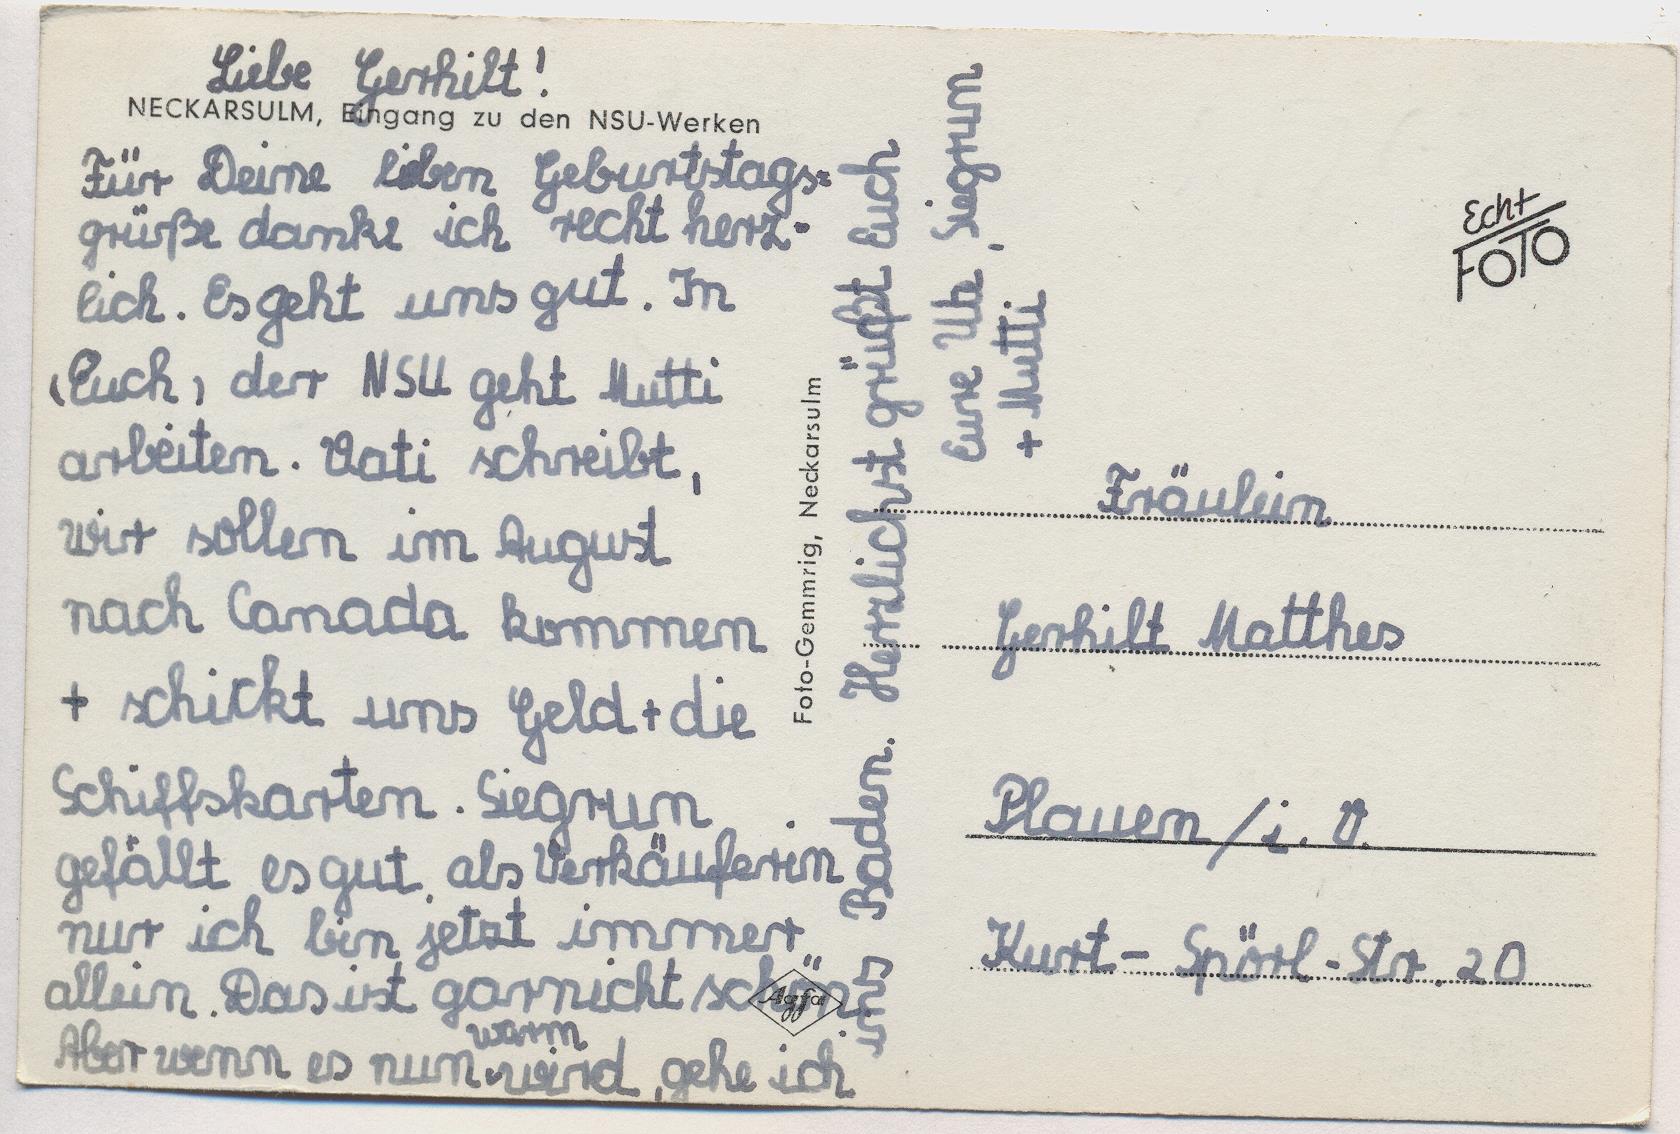 Liebe Gerhilt!
NECKARSULM, Eingang zu den NSU-Werken
Für Deine lieben Geburtstags=
grüße danke ich recht herz-
lich. Es geht uns gut. In
(Euch, der NSU geht Mutti
arbeiten. Vati schreibt,
wir sollen im August
nach Canada kommen
+ schickt uns Geld + die
Schiffskarten. Siegrun
gefällt es gut, als Verkäuferin
nur ich bin jetzt immer
allein. Das ist garnicht schön.
warm
Aber wenn es nun wird, gehe ich
ins Baden. Herzlichst grüßt Euch
Eure Ute, Siegrun
+ Mutti
Foto-Gemmrig, Neckarsulm
Agfa
Echt
FOTO
Fräulein
Gerhilt Matthes
Plauen / i. V.
Kurt- Spörl-Str. 20